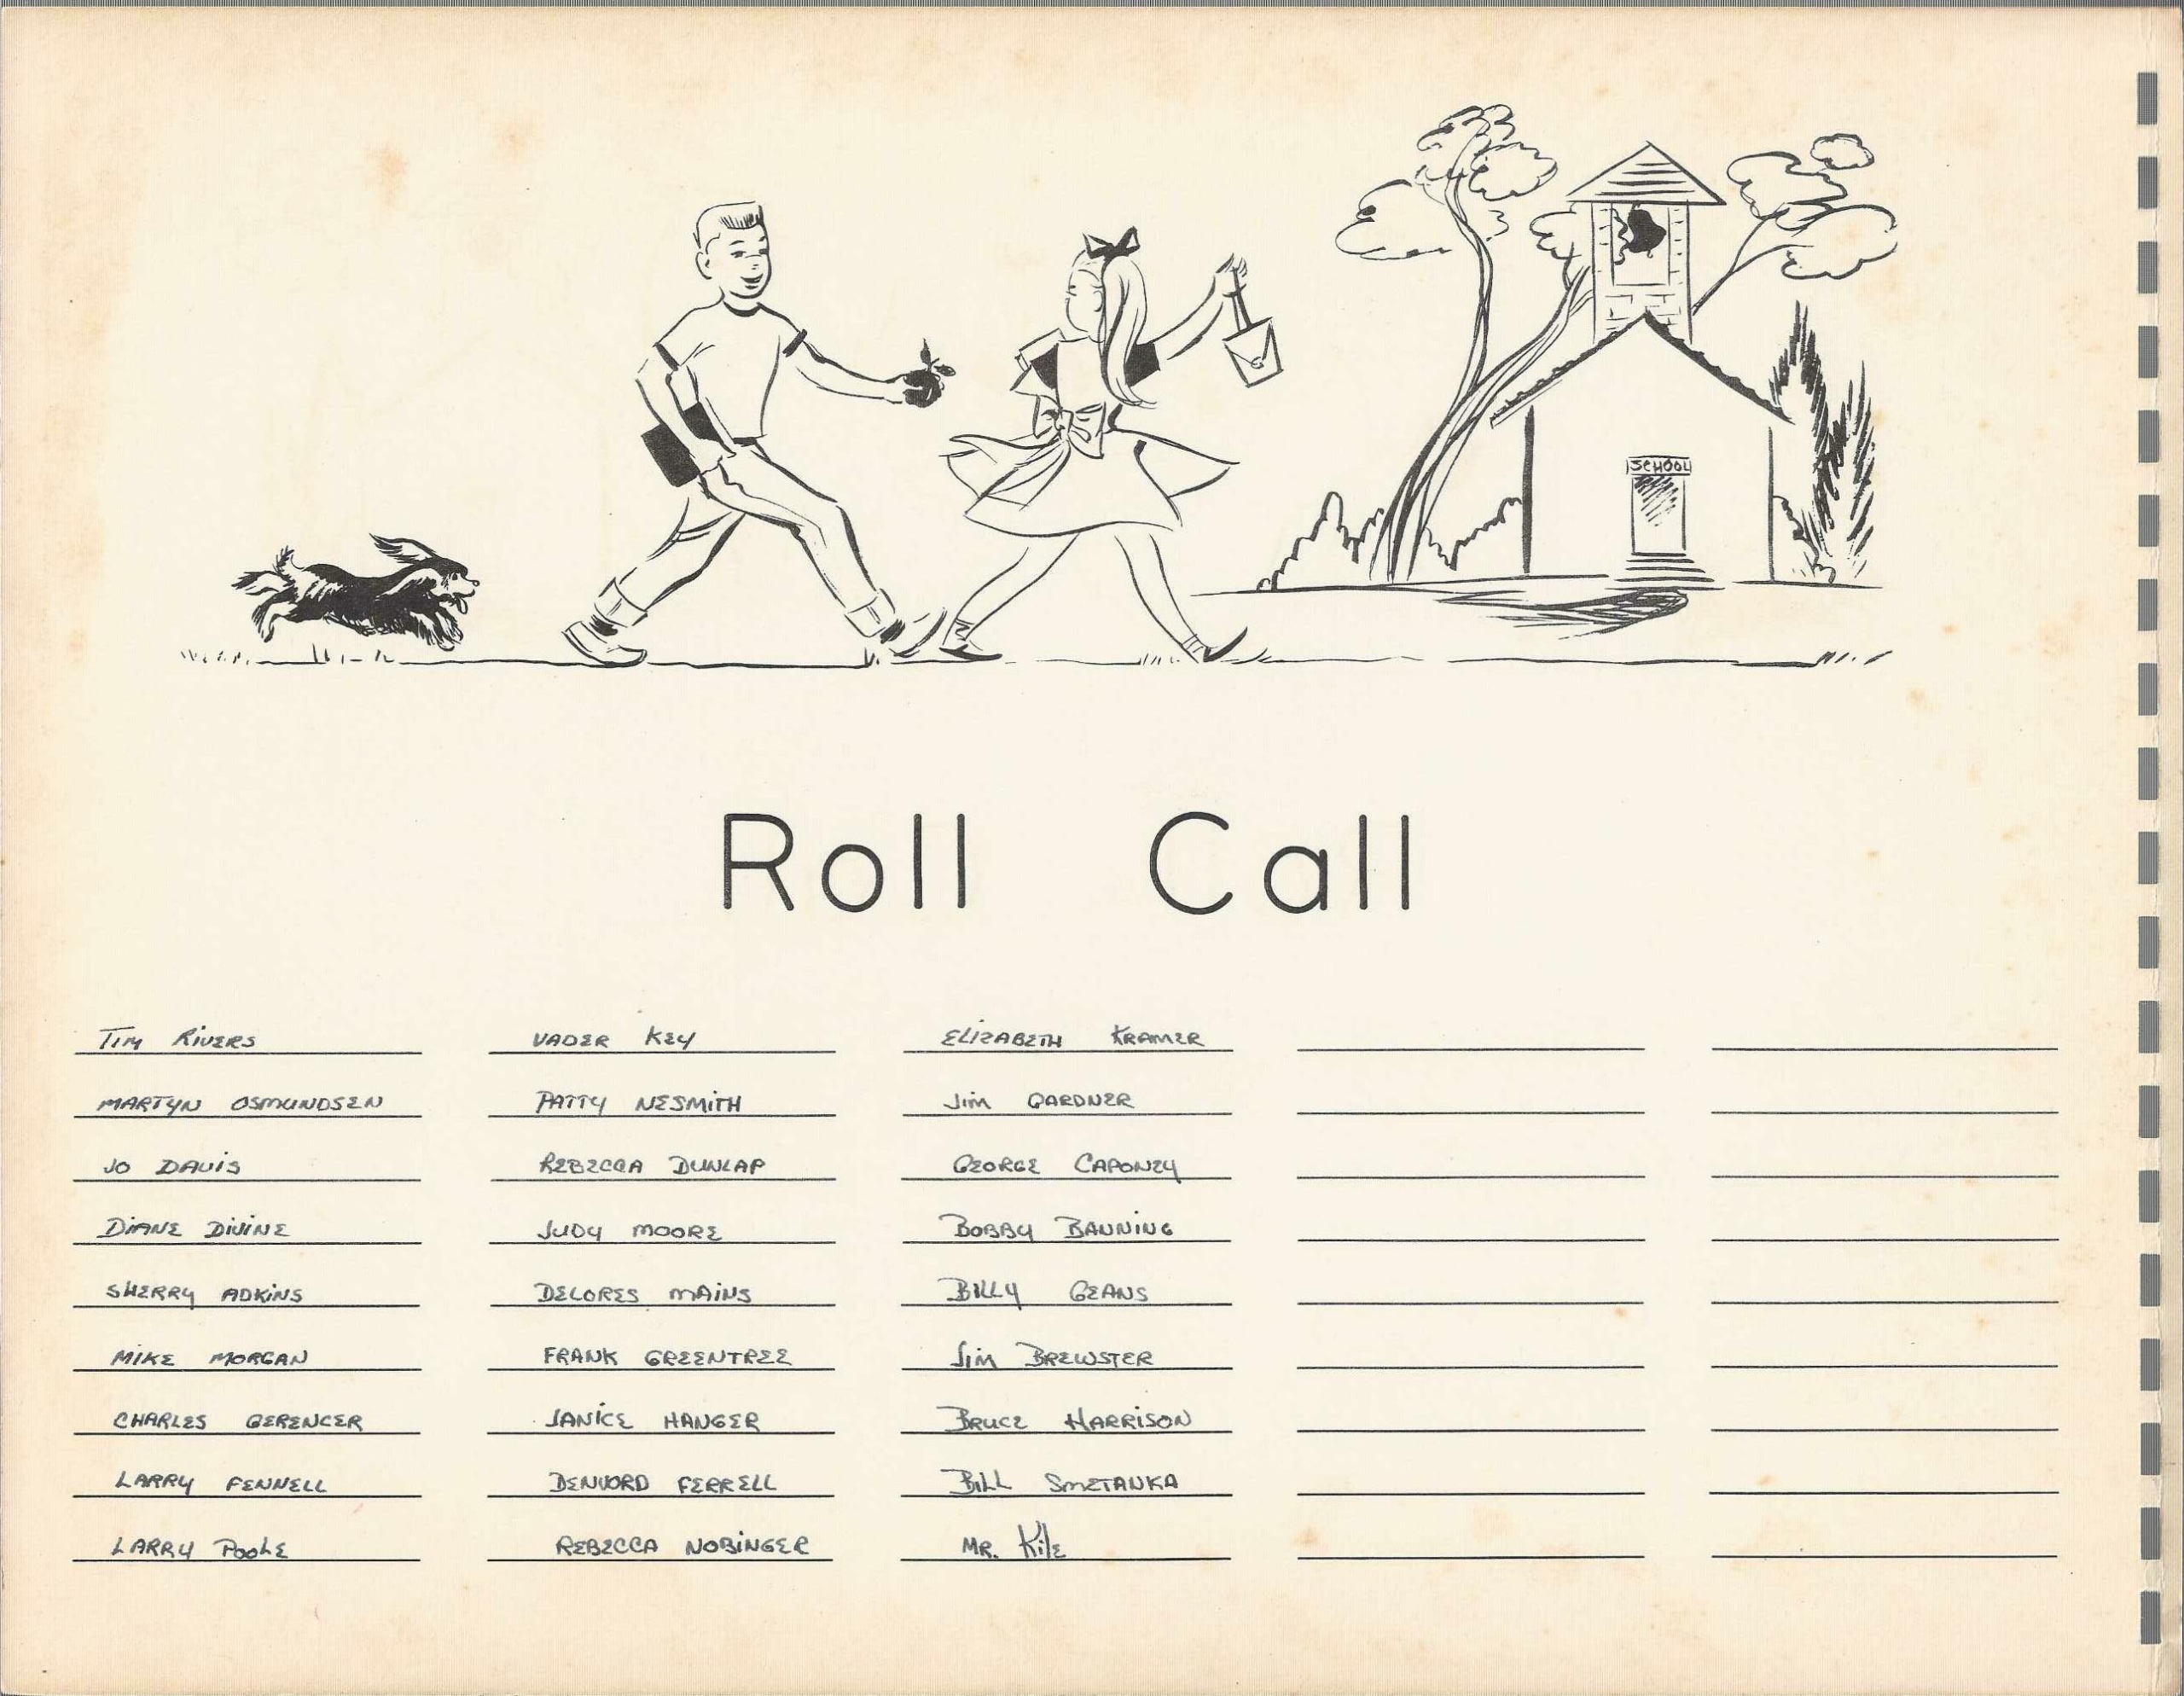 SCHOOL
Roll Call
TIM RIVERS
MARTYN OSMUNDSEN
JO DAVIS
DIANE DIVINE
SHERRY ADKINS
MIKE MORGAN
CHARLES GERENCER
LARRY FENNELL
LARRY POOLE
VADER KEY
PATTY NESMITH
REBECCA DUNLAP
JUDY MOORE
DELORES MAINS
FRANK GREENTREE
JANICE HANGER
DENVORD FERRELL
REBECCA NOBINGER
ELIZABETH KRAMER
JIM GARDNER
GEORGE CAPONEY
BOBBY BANNING
BILLY GEANS
JIM BREWSTER
BRUCE HARRISON
BILL SMETANKA
MR. Kile